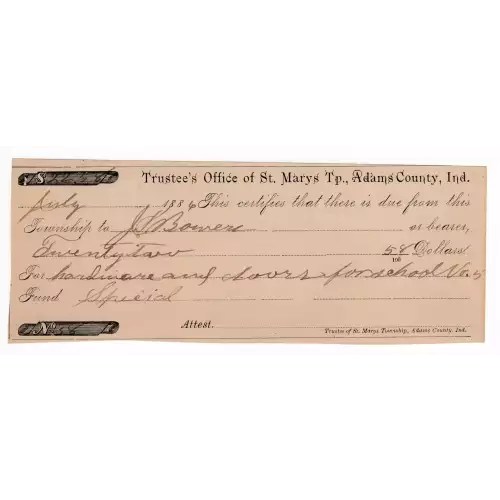 $
Trustee's Office of St. Marys Tp., Adams County, Ind.
July 1886 This certifies that there is due from this
Township to J Bowers or bearer,
Twenty two 58/100 Dollars.
For hardware and doors for school No. 5
Fund Special
No.
Attest.
Trustee of St. Marys Township, Adams County, Ind.